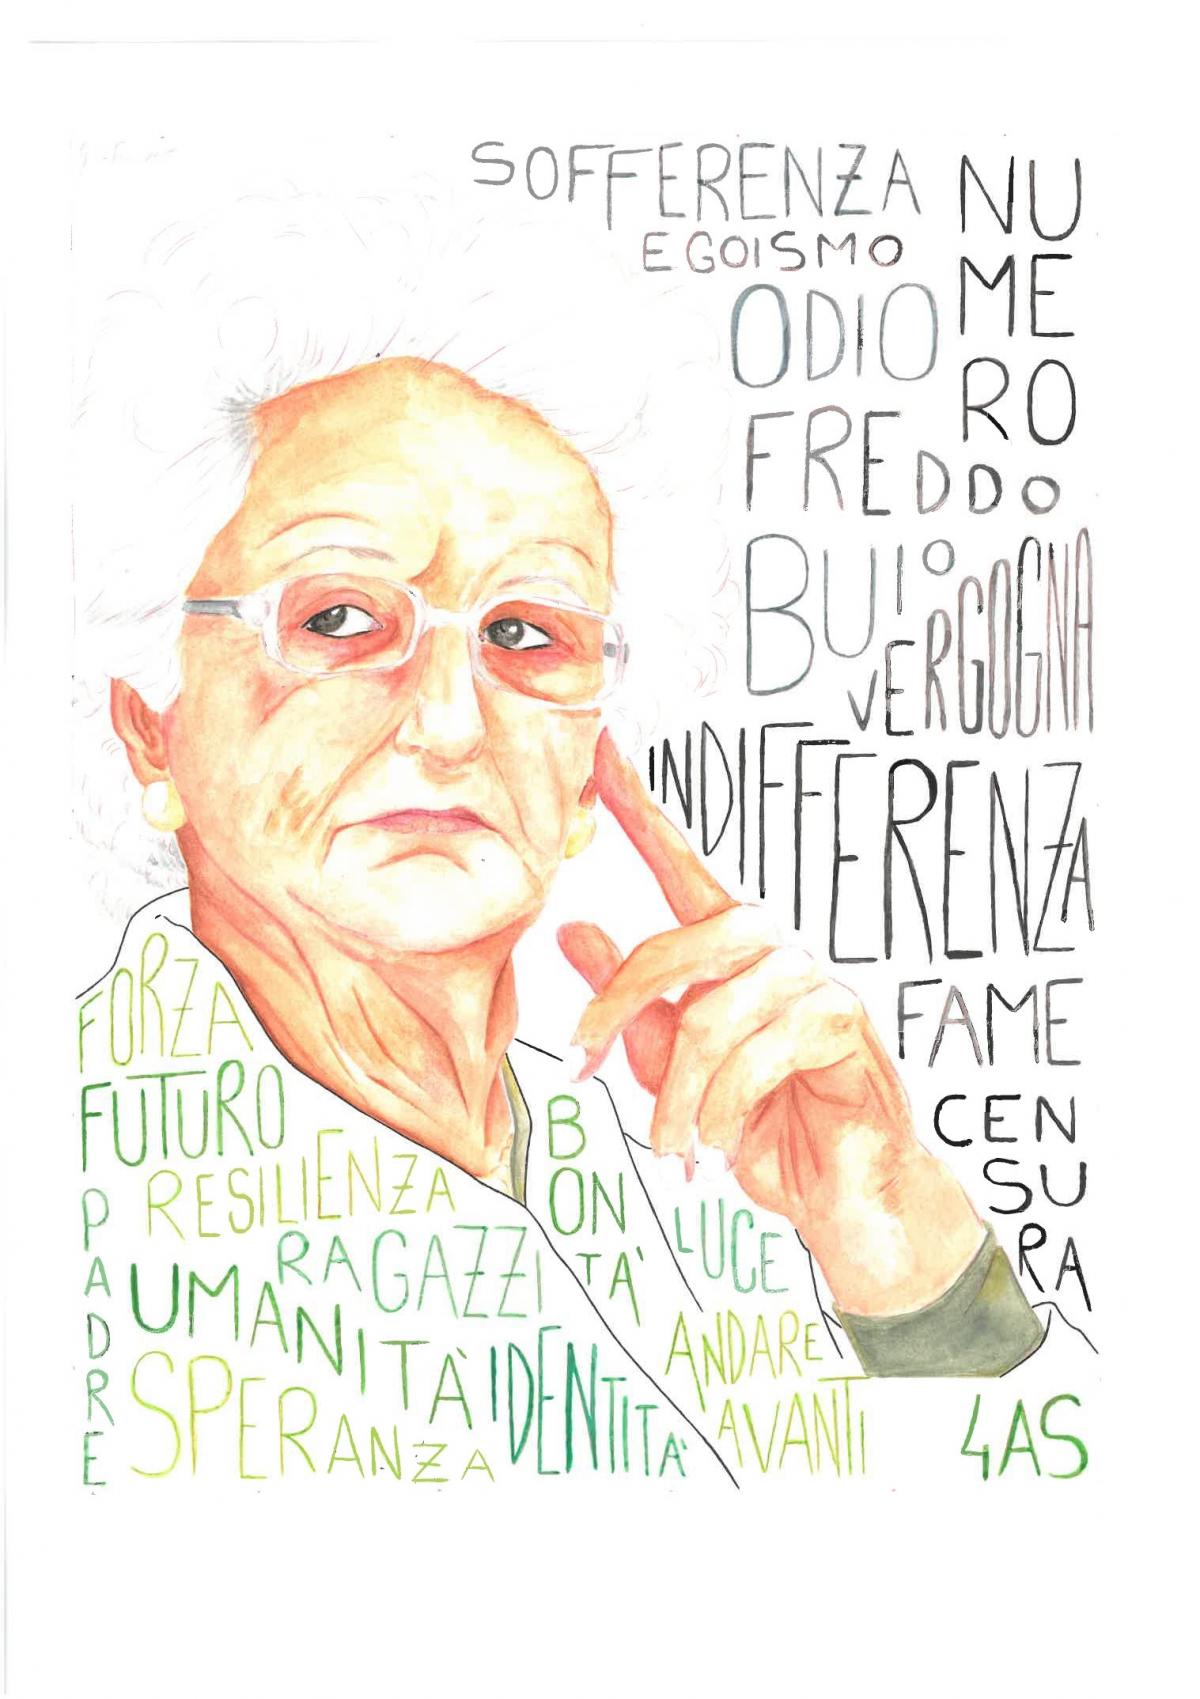 SOFFERENZA
EGOISMO
ODIO
NU
ME
RO
FREDDO
BUIO
VERGOGNA
INDIFFERENZA
FAME
CEN
SU
RA
FORZA
FUTURO
RESILIENZA
PADRE
RAGAZZI
UMANITÀ
SPERANZA
IDENTITÀ
B
ON
TÀ
LUCE
ANDARE
AVANTI
4AS